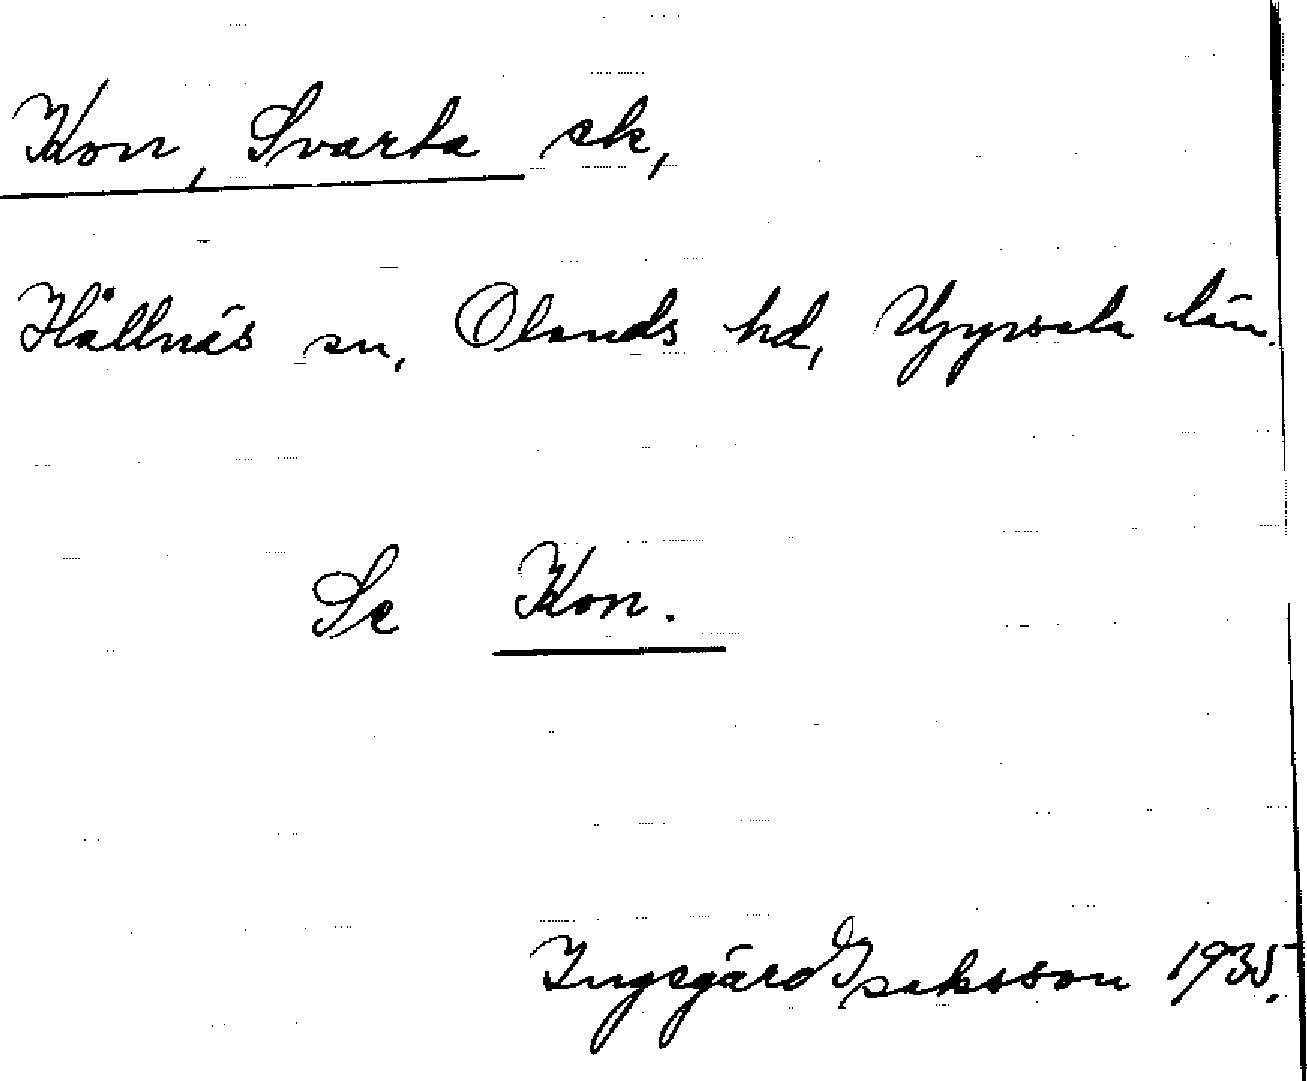 Kon, Svarta sk,
Hållnäs sn, Olands hd, Uppsala län.
Se Kon.
Ingegärd Isaksson 1935.